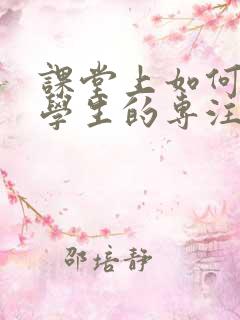 課堂上如何
學生的專注
邵培静